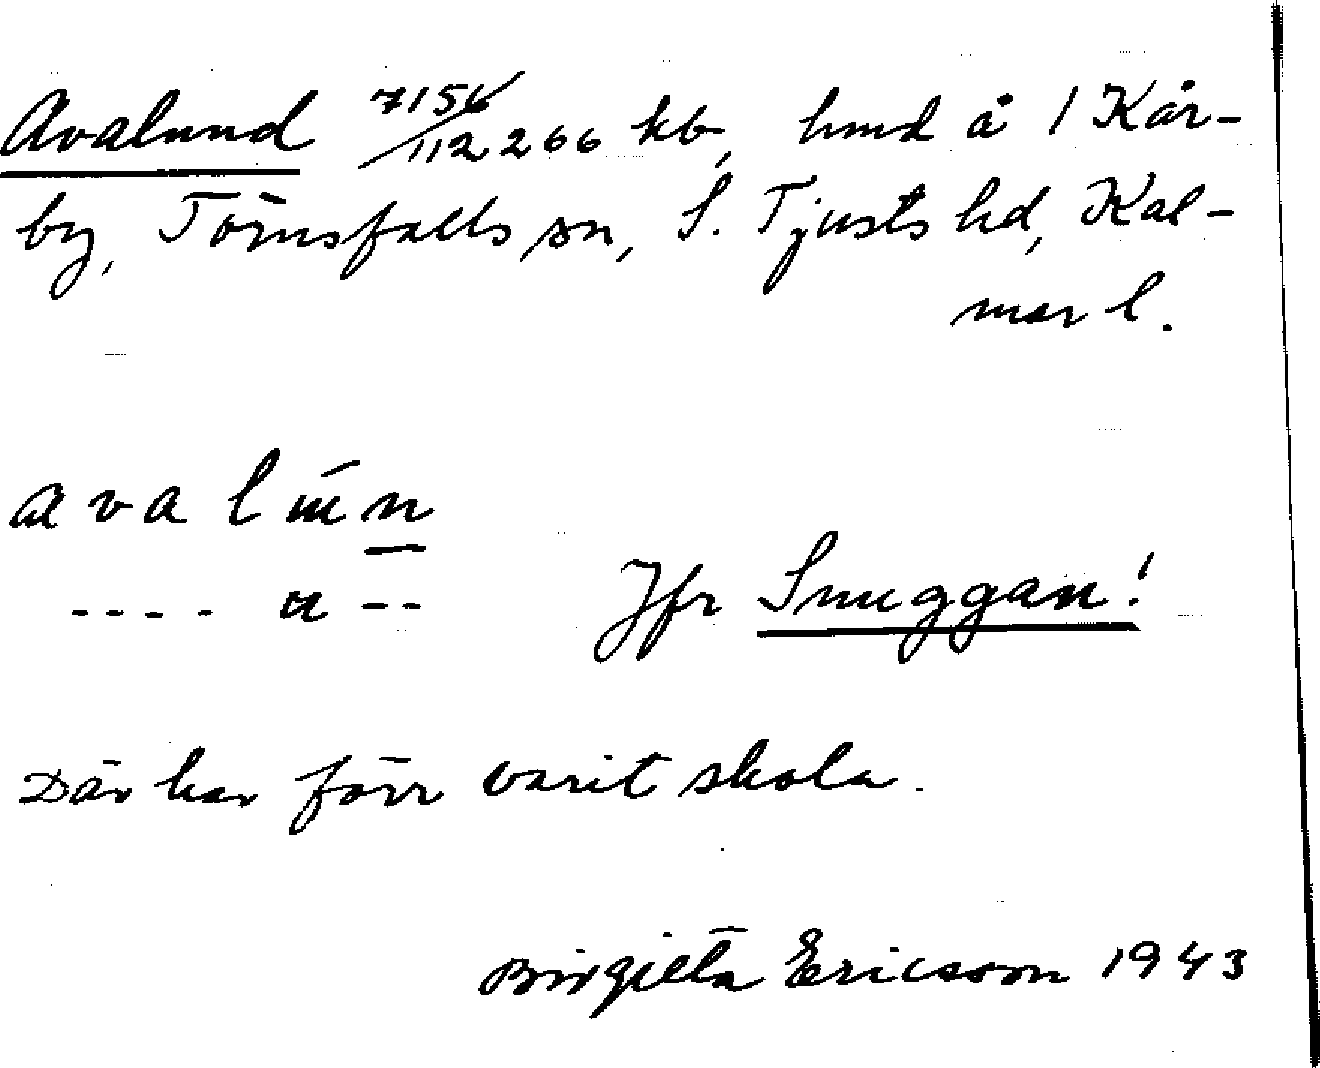 Avalund 7156/112266 kb, hmd å 1 Kår-
by, Törnsfalls sn, S. Tjusts hd, Kal-
mar l.
avalun
---- u -- Jfr Snuggan!
Där har förr varit skola.
Birgitta Ericsson 1943